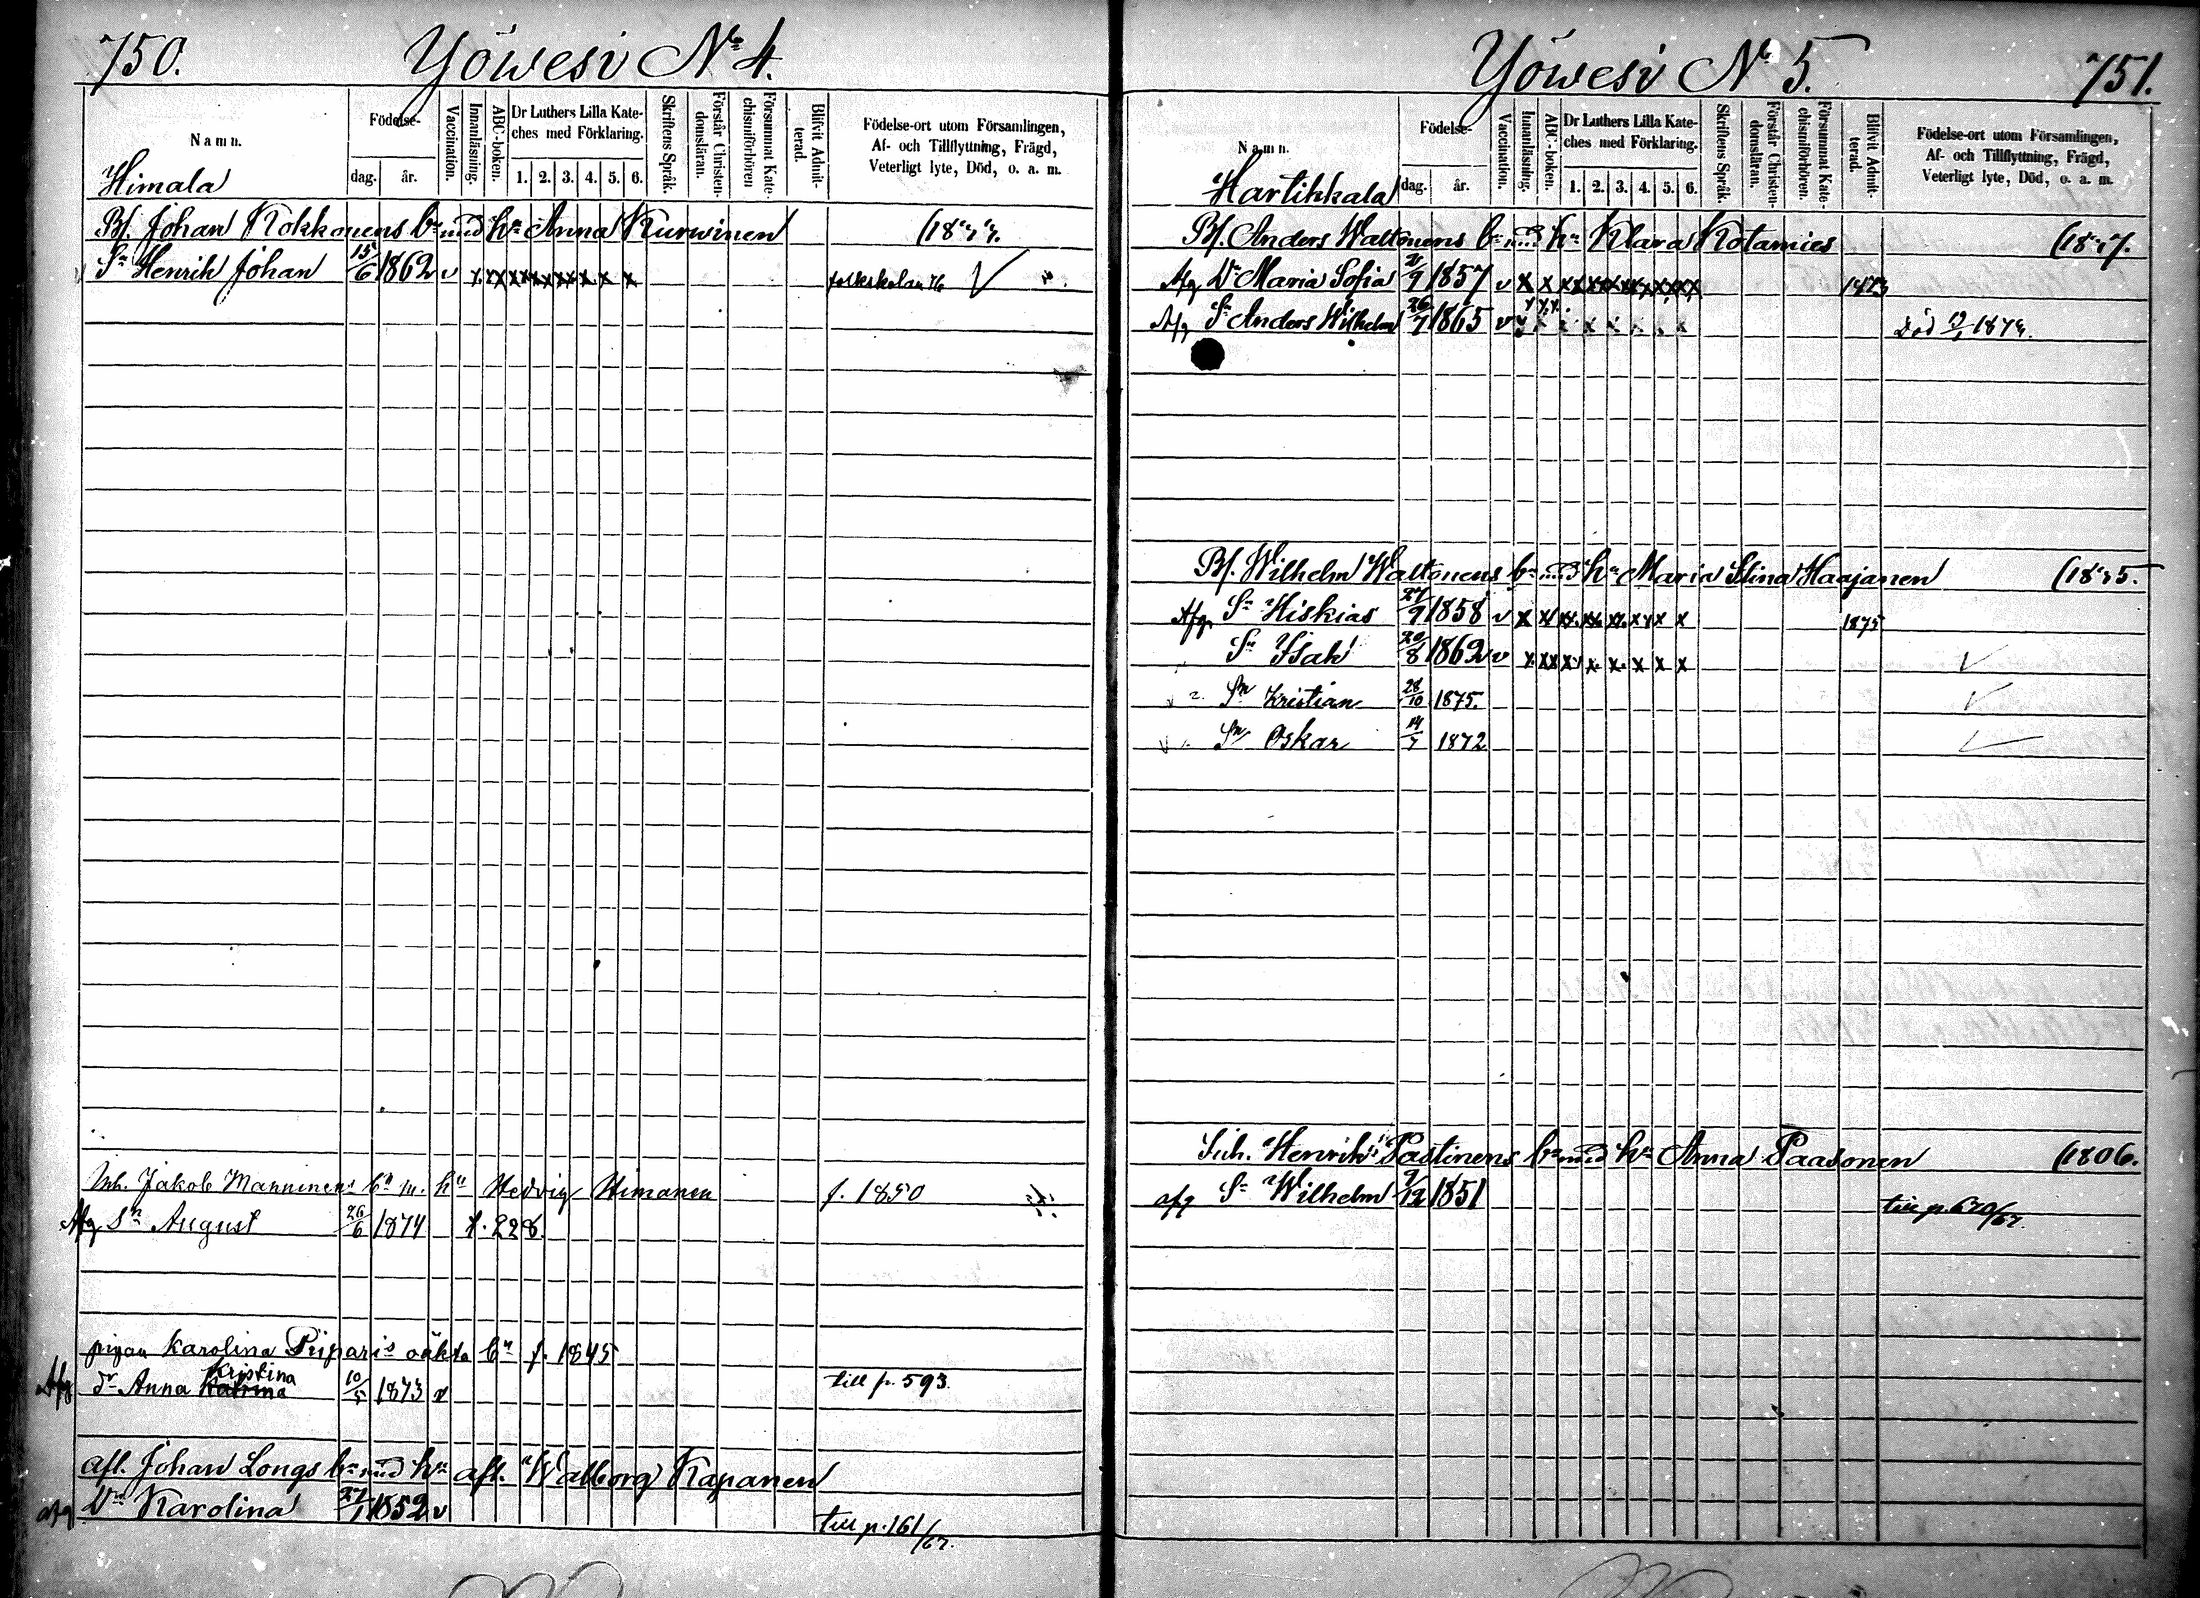 750.
Yöwesi No 4.
Namn.
Födelse-
dag.
år.
Vaccination.
Innanläsning.
ABC-boken.
Dr Luthers Lilla Kate-
ches med Förklaring.
1. 2. 3. 4. 5. 6.
Skriftens Språk.
Förstår Christen-
domsläran.
Försummat Kate-
chismiförhören
Blifvit Admit-
terad.
Födelse-ort utom Församlingen,
Af- och Tillflyttning, Frägd,
Veterligt lyte, Död, o. a. m.
Himala
Bf. Johan Kokkonens bn med hn Anna Kurwinen
Sn Henrik Johan 15/6 1862 v x xxx xxx xx xx x x x folkskolan 76
Inh. Jakob Manninens bn m. hu Hedvig Himanen f. 1850
Afg Sn August 26/6 1874 f. 228
pigan Karolina Piiparis oäkta bn f. 1845
Kristina
Afg dr Anna Katrina 10/5 1873 x till p. 593.
afl. Johan Longs bn med hn afl. Walborg Kapanen
afg Dr Karolina 27/1 1852 v till p. 161/67.
Yöwesi No 5.
751.
Namn.
Födelse-
dag.
år.
Vaccination.
Innanläsning.
ABC-boken.
Dr Luthers Lilla Kate-
ches med Förklaring.
1. 2. 3. 4. 5. 6.
Skriftens Språk.
Förstår Christen-
domsläran.
Försummat Kate-
chismiförhören.
Blifvit Admit-
terad.
Födelse-ort utom Församlingen,
Af- och Tillflyttning, Frägd,
Veterligt lyte, Död, o. a. m.
Hartikkala
Bf. Anders Waltonens bn med hn Klara Kotamies
Afg Dr Maria Sofia 1857 v x x xx xx xx xx xx
Afg Sn Anders Wilhelm 26/7 1865 v Död
Bf. Wilhelm Waltonens bn med hn Maria Stina Haajanen
Afg. Sn Hiskias 27/9 1858 v x x xx xx xx xx x x 1875
Sn Isak 20/8 1862 v x xxx x x x x x x
Sn Kristian 28/10 1875.
Sn Oskar 14/7 1872
Inh. Henrik Pastinens bn med hn Anna Paasonen (1806.
afg Sn Wilhelm 9/12 1851 till p. 670/67.